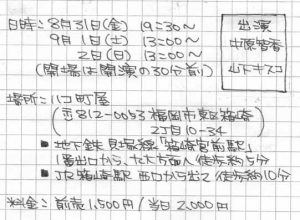 日時：8月31日(金) 19:30〜
9月1日(土) 13:00〜
2日(日) 13:00〜
(開場は開演の30分前)
出演
中原智香
山下キスコ
場所：ハコ町屋
(〒812-0053 福岡市東区箱崎
2丁目10-34
・地下鉄貝塚線「箱崎宮前駅」
1番出口から、九大方面へ徒歩約5分
・JR箱崎駅 西口から出て徒歩約10分
料金：前売1,500円/当日2,000円